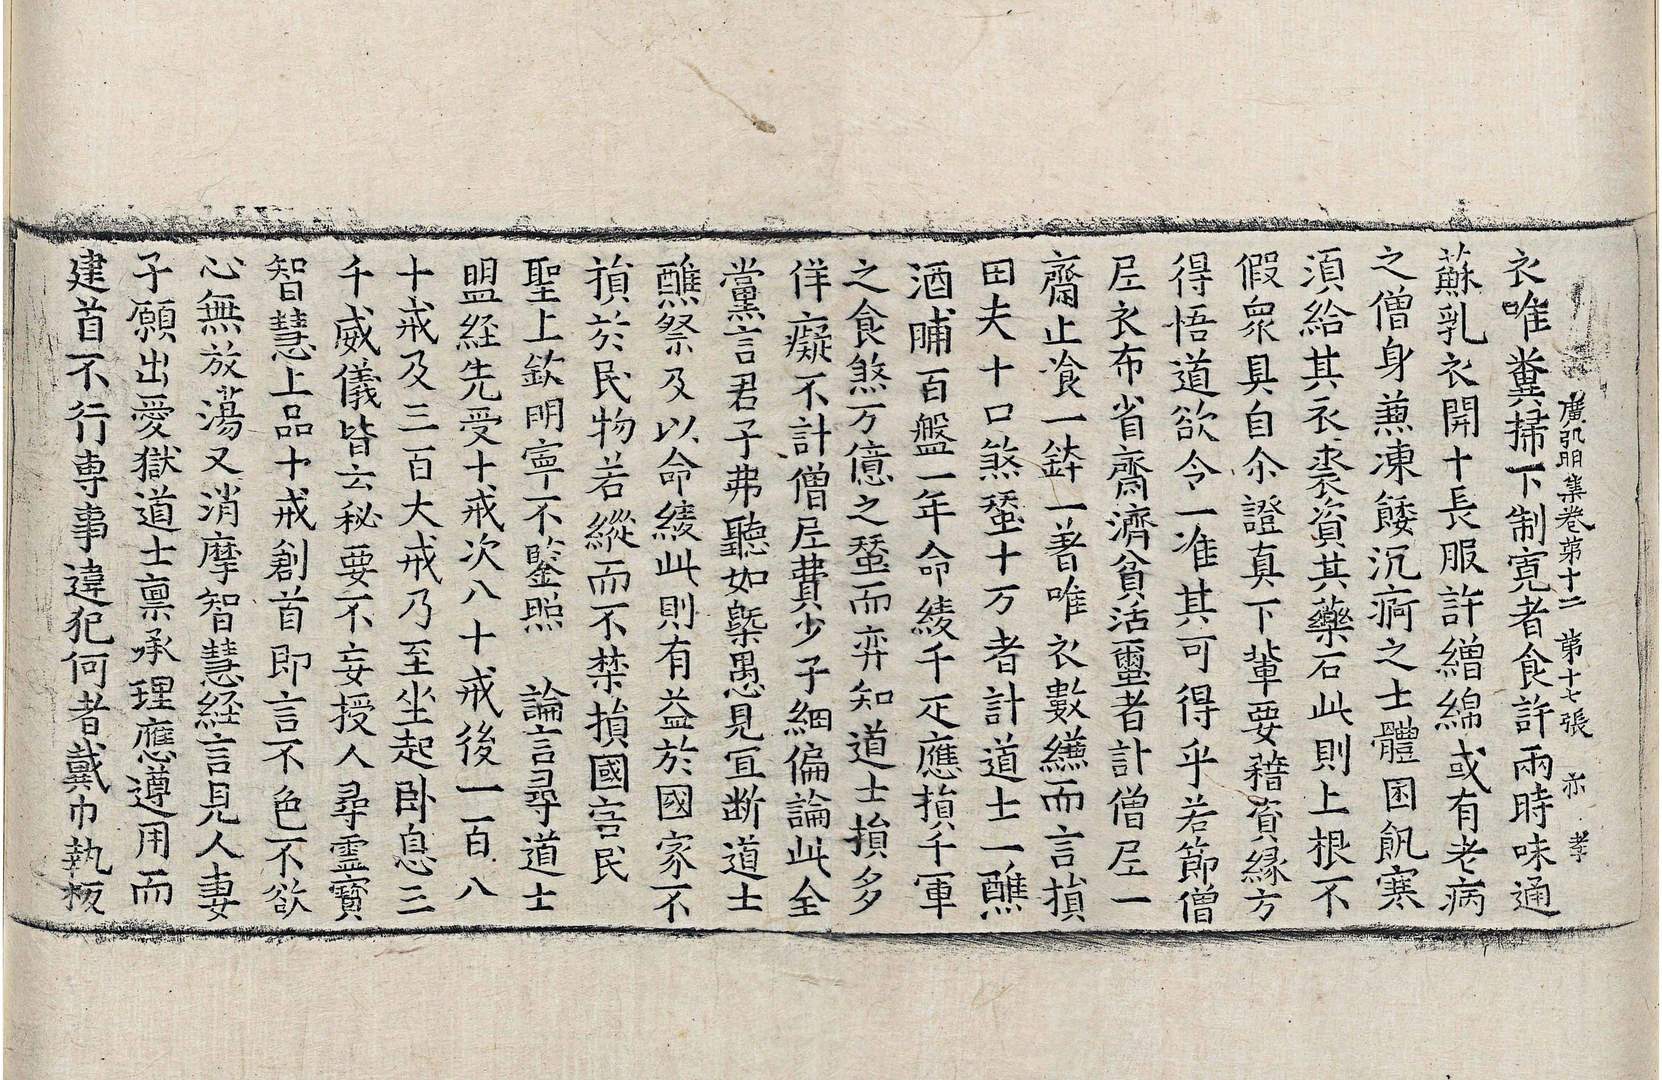 廣弘明集卷第十二　第十七張　亦　孝
衣唯糞掃下制寬者食許兩時味通
蘇乳衣開十長服許繒綿或有老病
之僧身兼凍餧沉痾之士體困飢寒
湏給其衣裘資其藥石此則上根不
假衆具自尒證真下輩要藉資緣方
得悟道欲令一准其可得乎若節僧
尼衣布省齋濟貧活蠒者計僧尼一
齋止飡一鉢一著唯衣數䌥而言損
田夫十口煞蠒十万者計道士一醮
酒脯百盤一年命綾千疋應損千軍
之食煞万億之蠒而弃知道士損多
佯癡不計僧尼費少子細偏論此全
黨言君子弗聽如槩愚見宜断道士
醮祭及以命綾此則有益於國家不
損於民物若縱而不禁損國害民
聖上欽明寧不鑒照　論言尋道士
盟経先受十戒次八十戒後一百八
十戒及三百大戒乃至坐起卧息三
千威儀皆云秘要不妄授人尋霊寳
智慧上品十戒創首即言不色不欲
心無放蕩又消摩智慧経言見人妻
子願出愛獄道士禀承理應遵用而
建首不行専事違犯何者戴巾執板